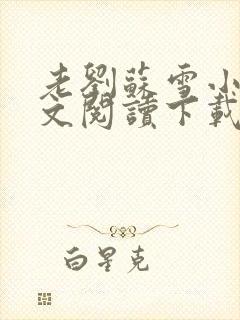 老劉蘇雪小
文閱讀下載
白星克